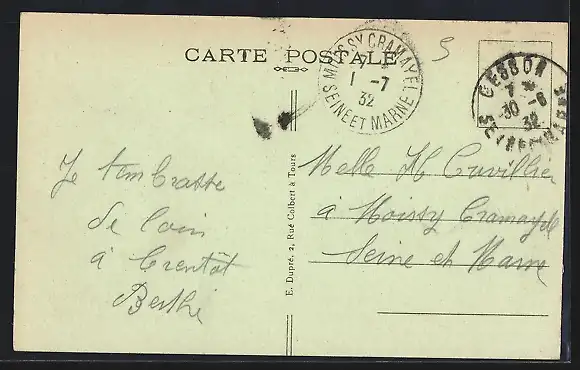 CARTE POSTALE
MOISSY CRAMAYEL
7 *
1 -7
32
SEINE ET MARNE
CESSON
7 *
30 -6
32
SEINE ET MARNE
5
Je t'embrasse
de loin
à bientôt
Berthe
E. Dupré, 2, Rue Colbert à Tours
Melle H Cuvillier
à Moissy Cramayel
Seine et Marne